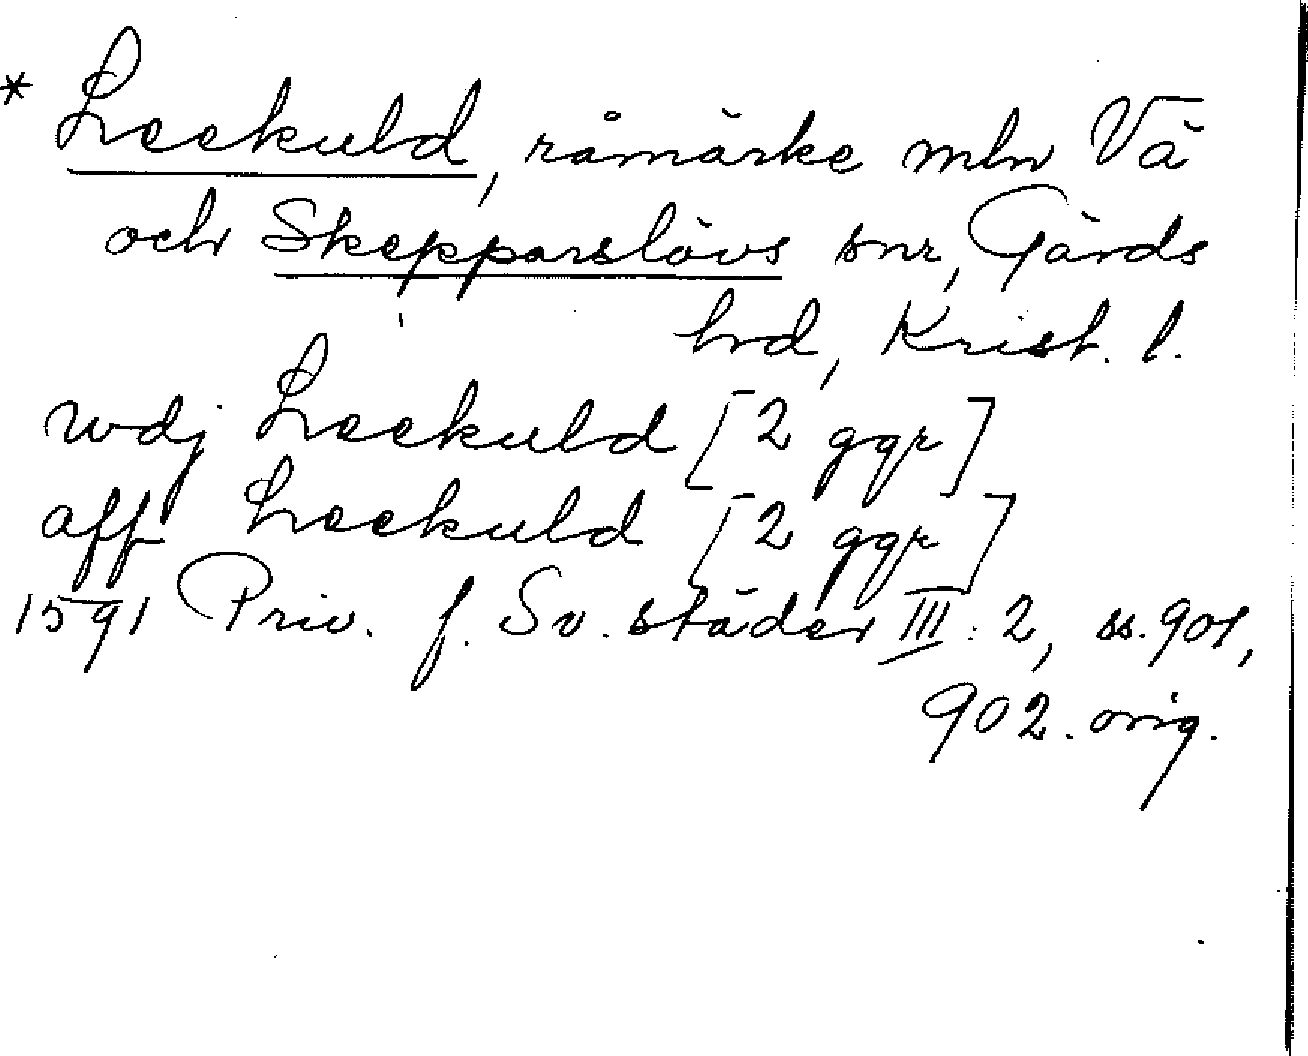 * Leekuld, råmärke mln Vä
och Skepparslövs snr, Gärds
hrd, Krist. l.
udj Leekuld [2 ggr]
aff Leekuld [2 ggr]
1591 Priv. f. Sv. städer III: 2, ss. 901,
902. orig.